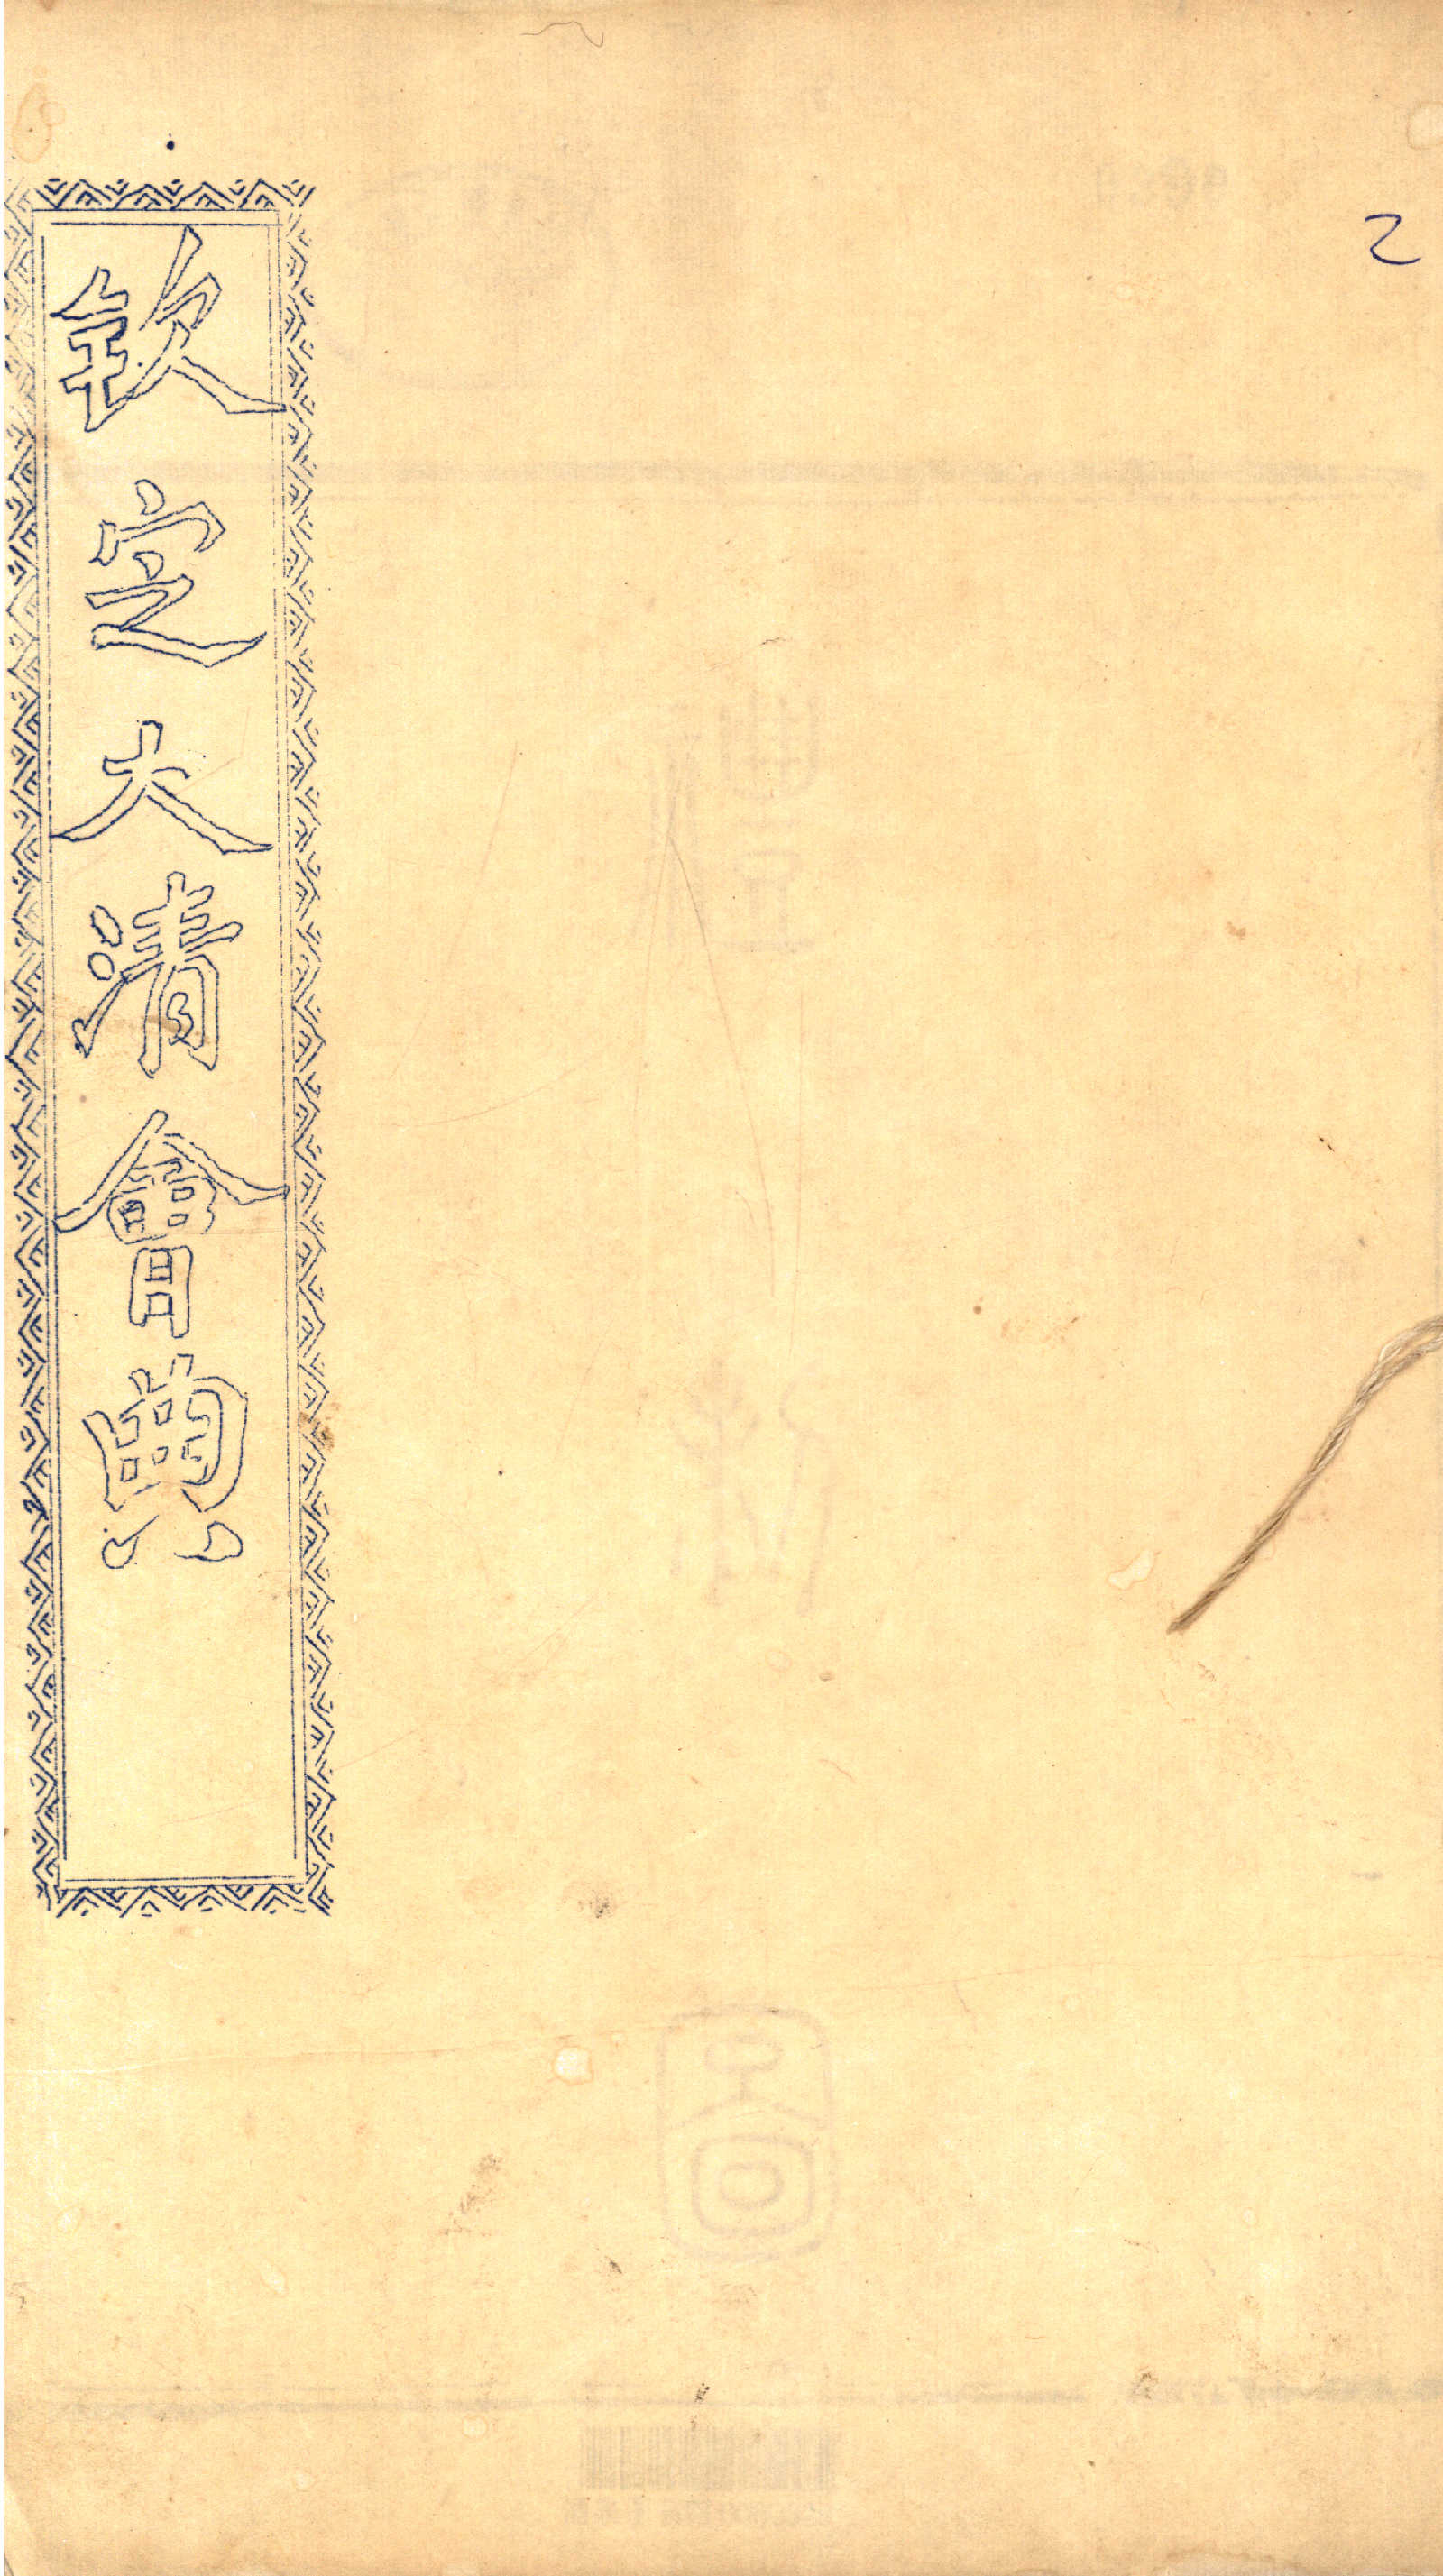 2
欽定大清會典